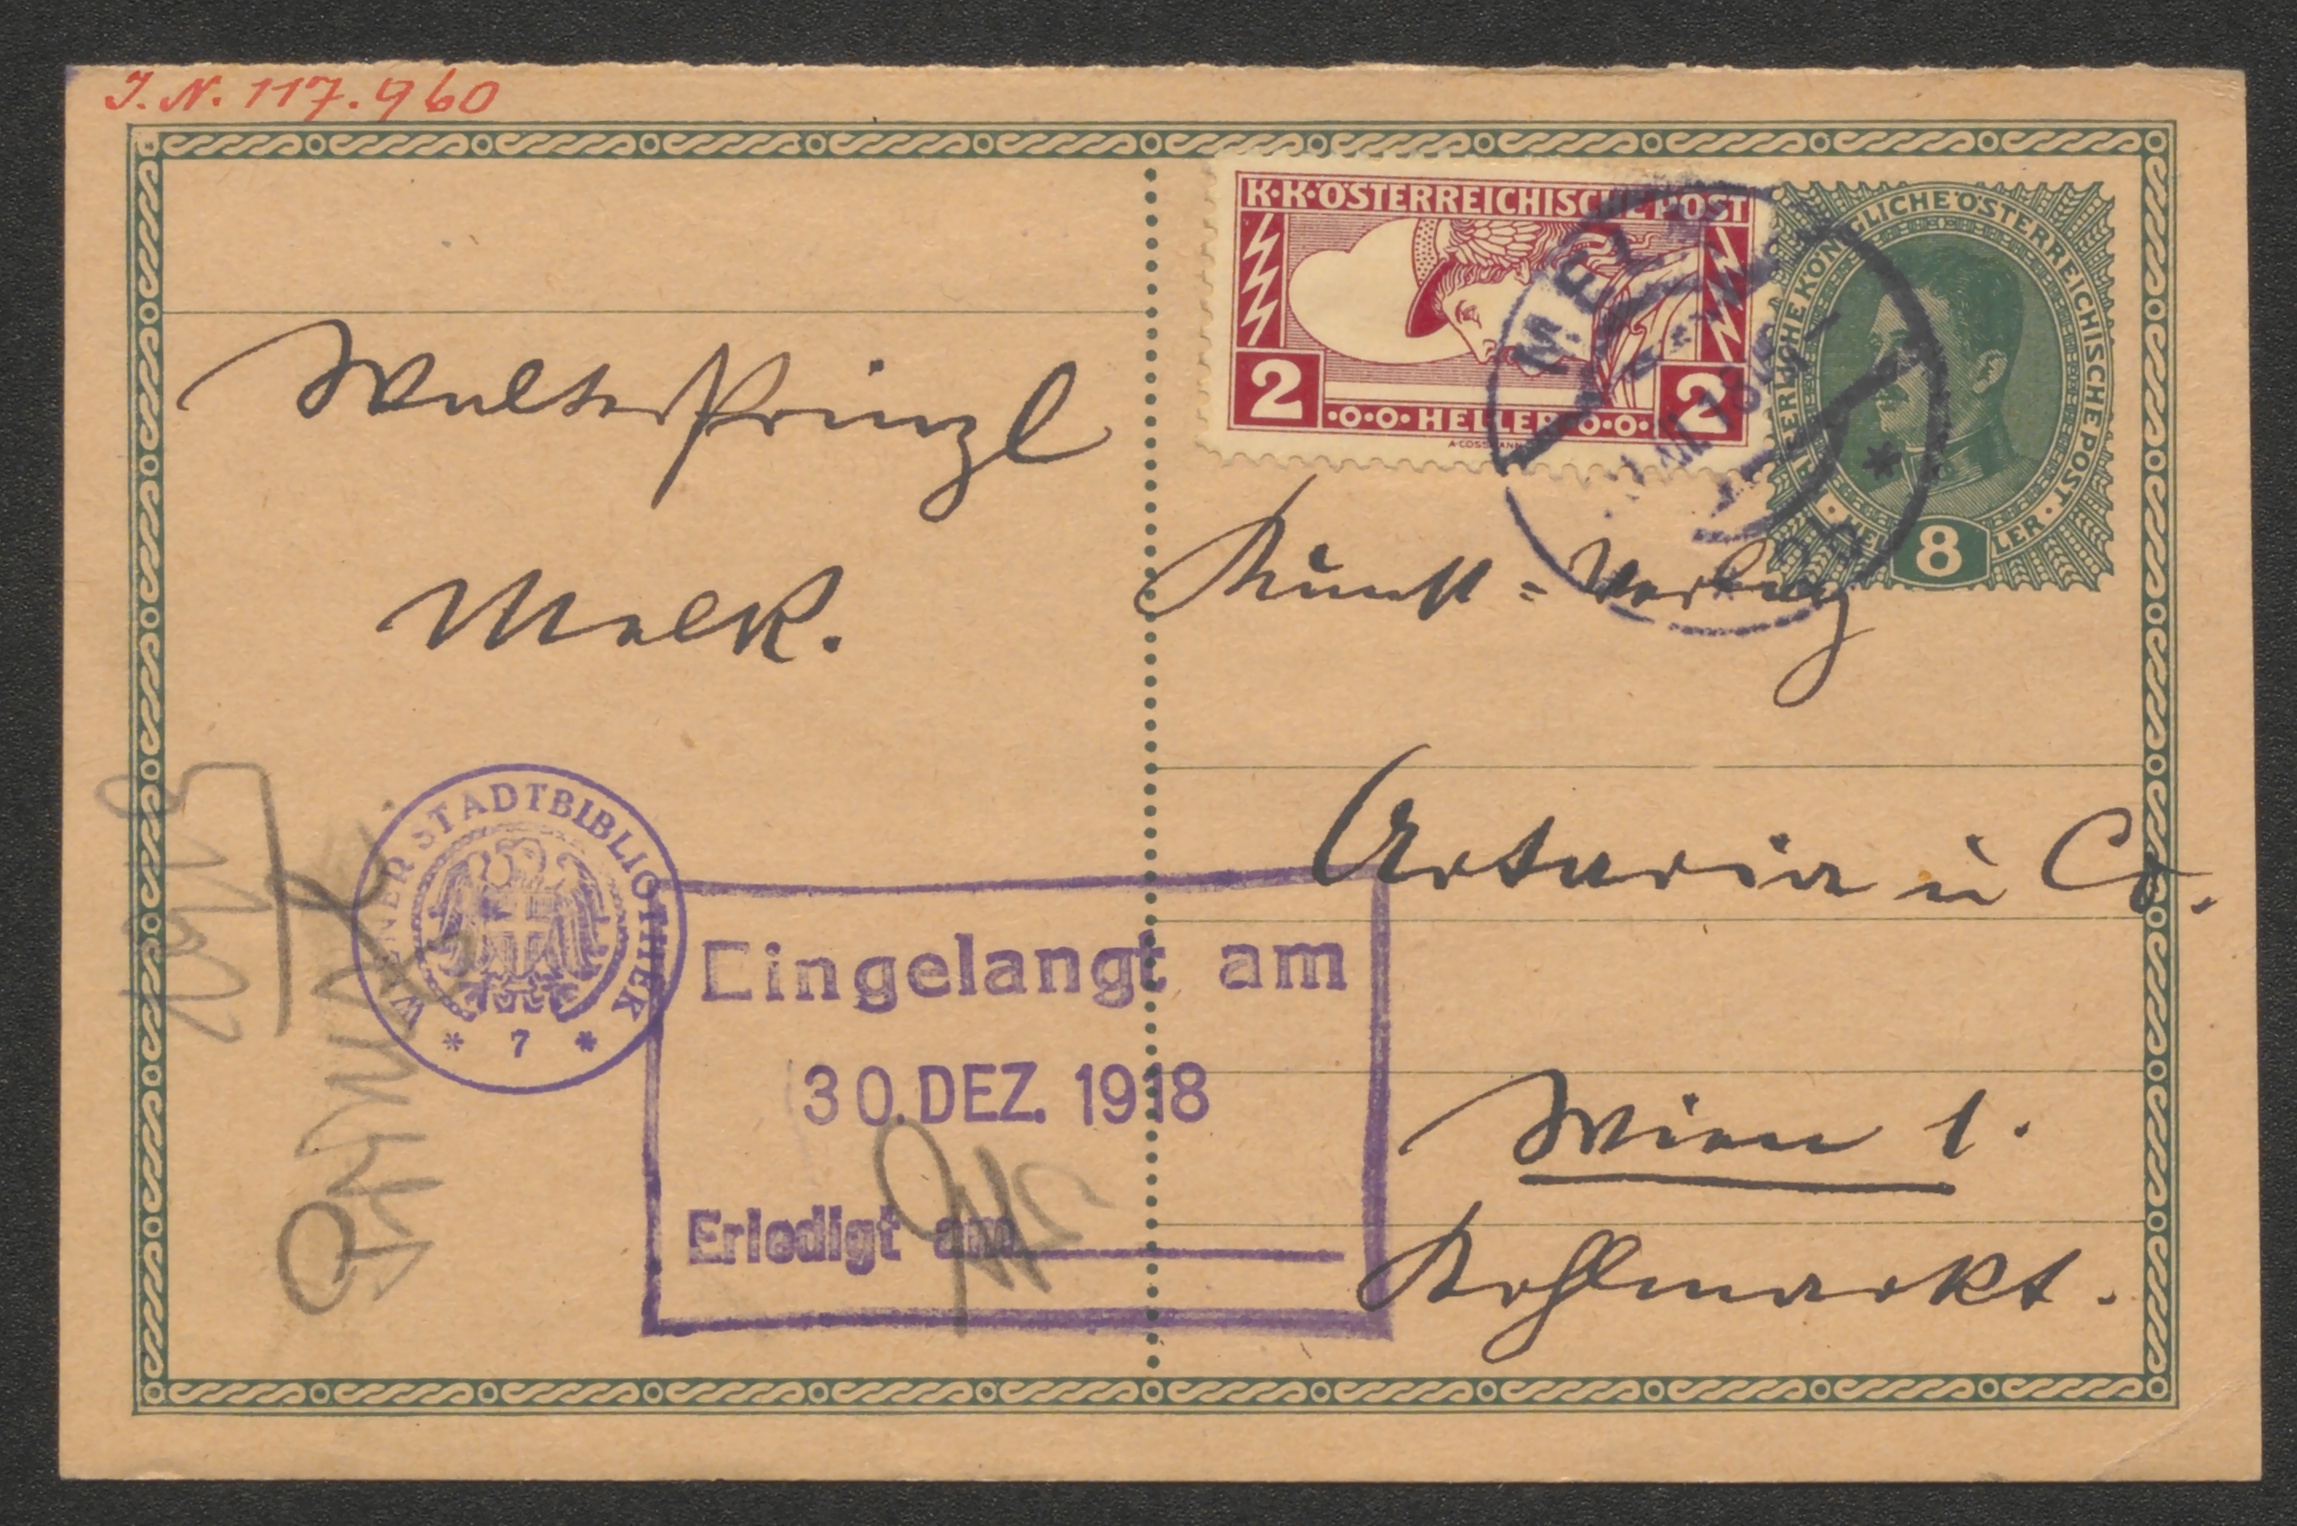 J. N. 117.960
K·K·ÖSTERREICHISCHE POST
2 ·O·O·HELLER·O·O· 2
KAISERLICHE KÖNIGLICHE ÖSTERREICHISCHE POST
8
Walter Prinzl
Melk.
Kunst = Verlag
Artaria u Co.
Wien 1.
Kohlmarkt.
WIENER STADTBIBLIOTHEK
* 7 *
Eingelangt am
30. DEZ. 1918
Erledigt am